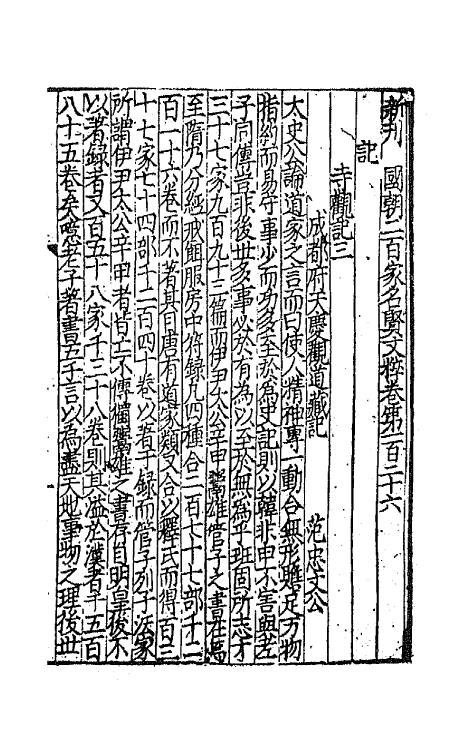 新刊國朝二百家名賢文粹卷第一百二十六
記
寺觀記三
成都府天慶觀道藏記 范忠文公
太史公論道家之言而曰使人精神專一動合無形贍足万物
指約而易守事少而功多至於為史記則以韓非申不害與老
子同傳豈非後世多事必於有為以至於無為乎班固所志才
三十七家九百九十三篇而伊尹太公辛甲鬻雄管子之書在焉
至隋乃分經戒餌服房中符錄凡四種合二百七十七部千二
百一十六卷而不著其目唐有道家類又合以釋氏而得百三
十七家七十四部千二百四十卷以著于錄而管子列于法家
所謂伊尹太公辛甲者皆亡不傳獨鬻雄之書存自明皇後不
以著錄者又百五十八家千三十八卷則其溢於漢者千五百
八十五卷矣噫老子著書五千言以為盡天地事物之理後世